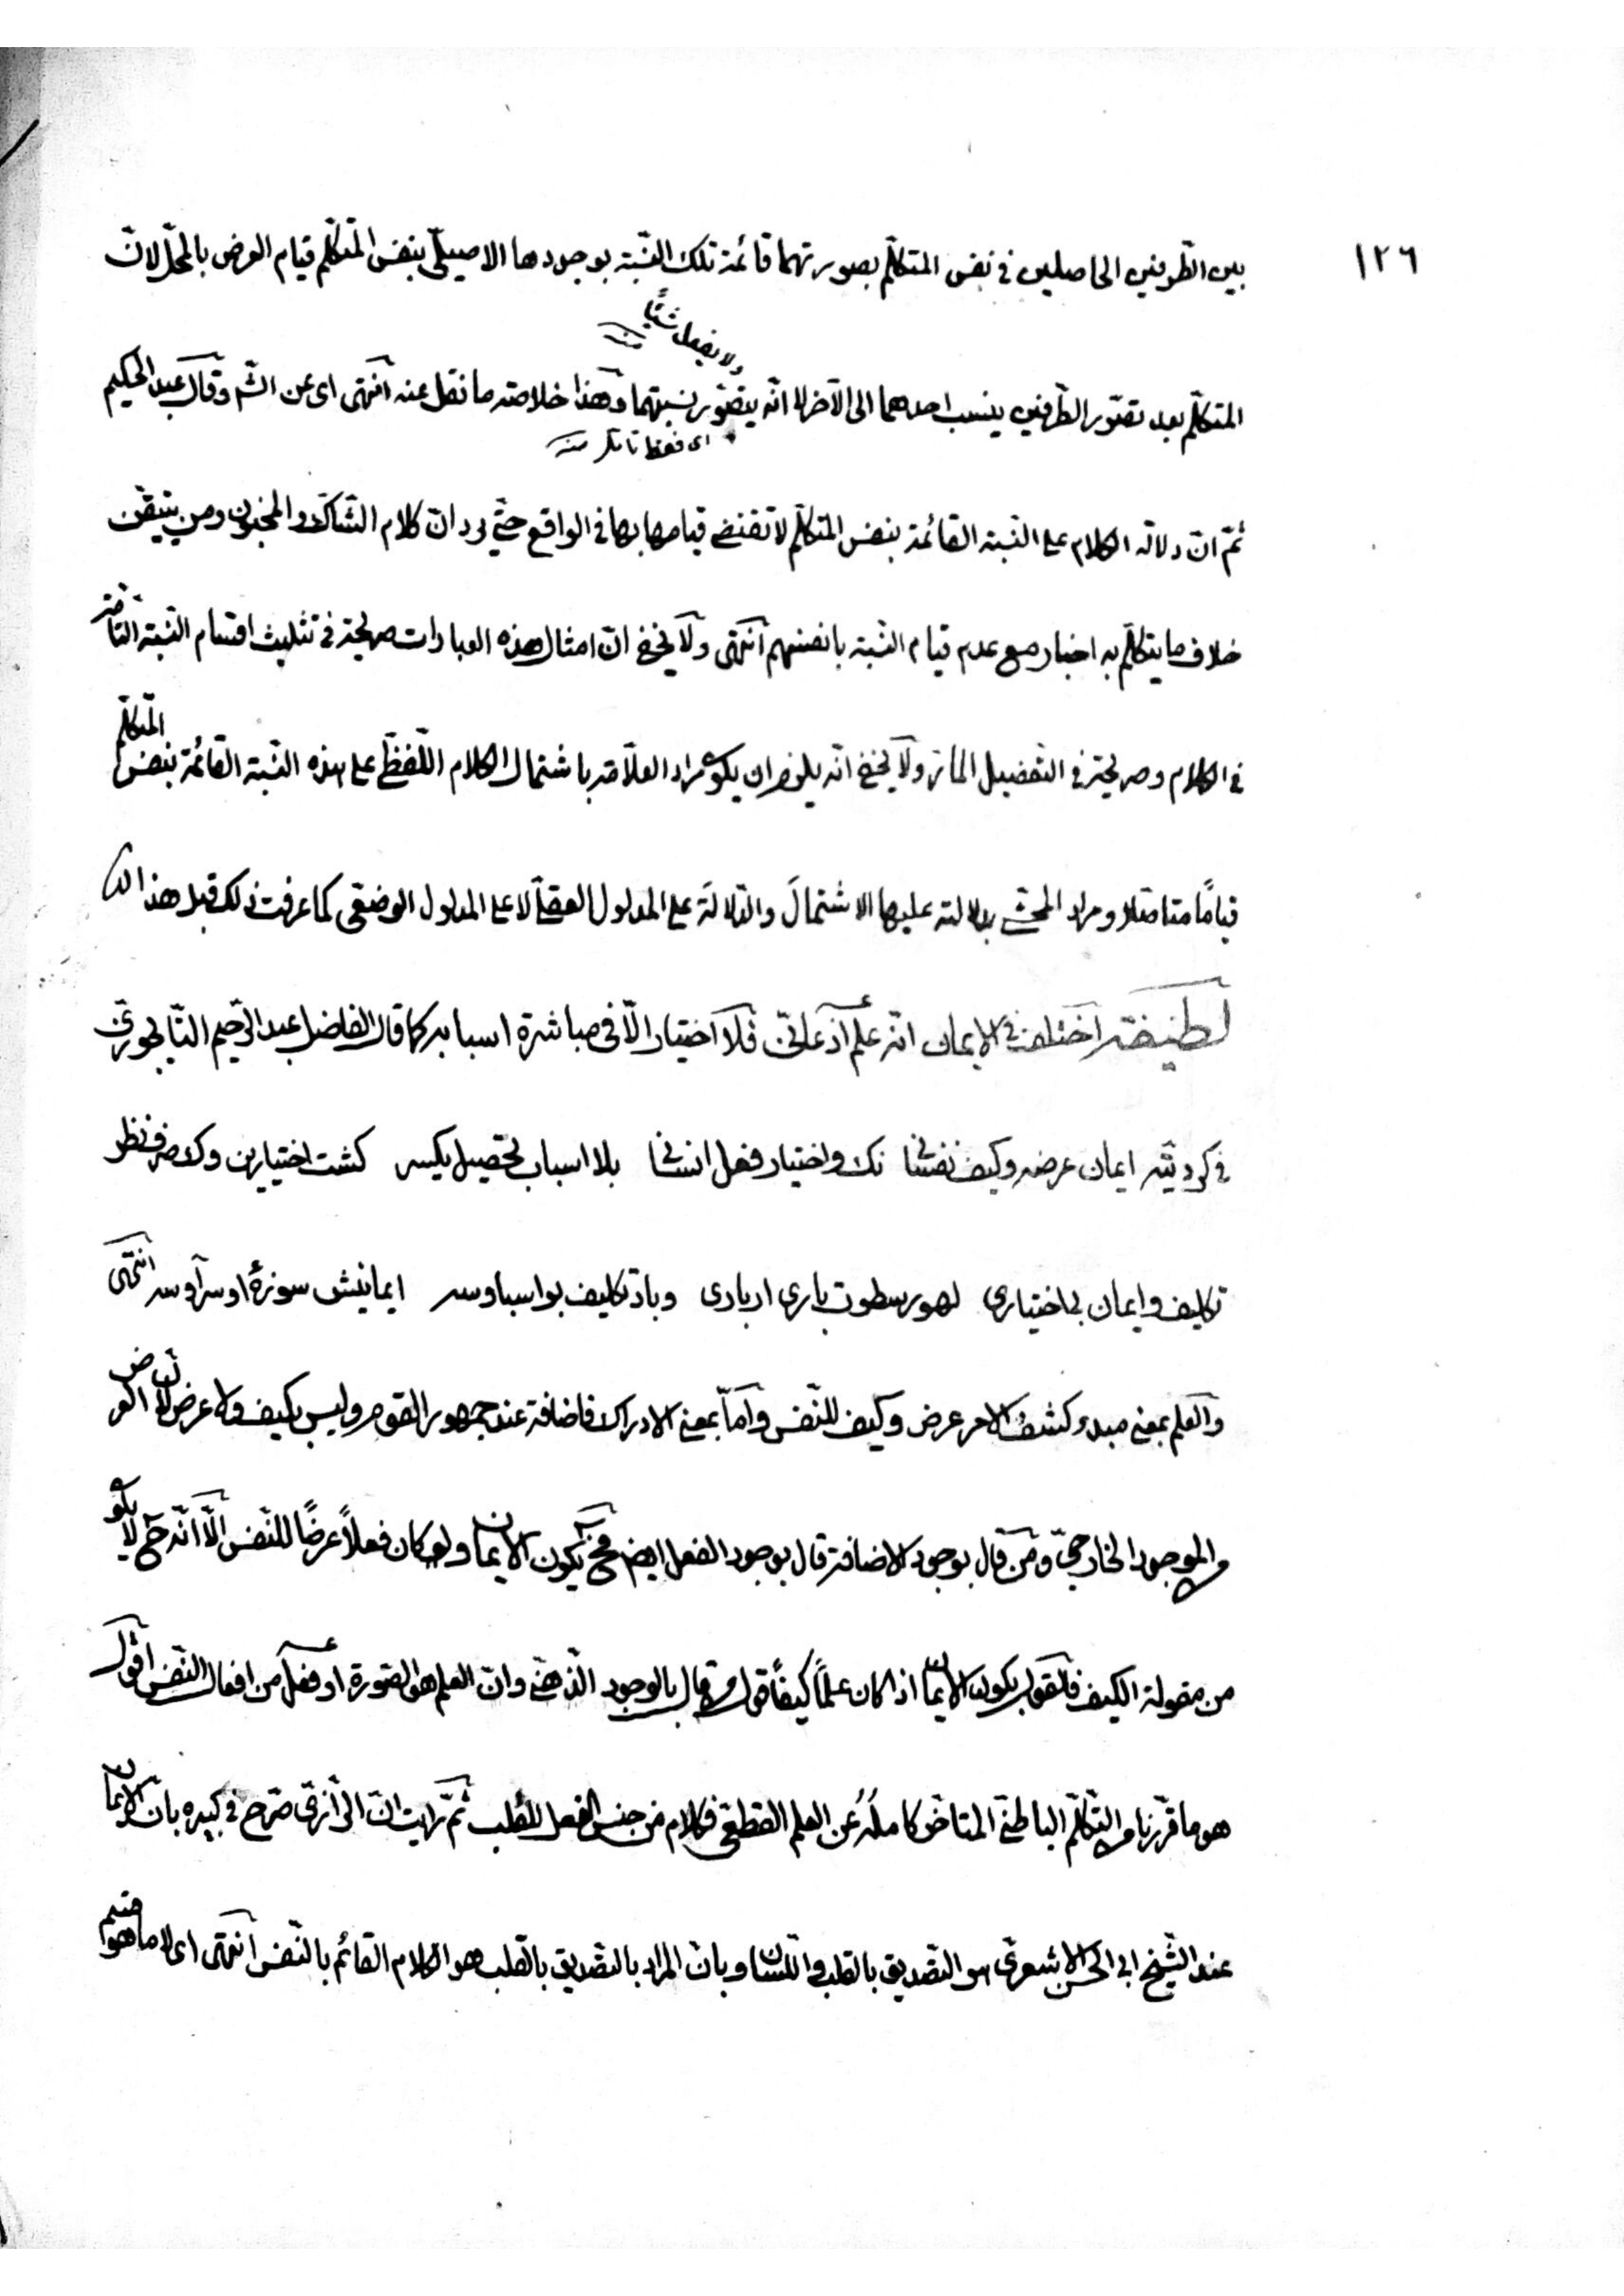 ١٢٦
بين الطّرفين الحاصلين في نفس المتكلّم بصورتهما قائمة تلك النّسبة بوجودها الاصيليّ بنفس المتكلّم قيام العرض بالمحلّ لانّ
ولا يفعل شيئًا منه
المتكلّم بعد تصوّر الطّرفين ينسب احدهما الى الآخر لا انّه يتصوّر نسبتهما وهذا خلاصة ما نقل عنه انتهى اى عن الشّ وقال عبد الحكيم
اى فقط تأمّل منه
ثمّ انّ دلالة الكلام على النّسبة القائمة بنفس المتكلّم لا تقتضى قيامها بها في الواقع حتّى يرد انّ كلام الشّاكّ والمجنون ومن يتيقّن
خلاف ما يتكلّم به اخبار مع عدم قيام النّسبة بانفسهم انتهى ولا يخفى انّ امثال هذه العبارات صريحة في تثليث اقسام النّسبة التّامّة
في الكلام وصريحة في التّفصيل المارّ ولا يخفى انّه يلزم ان يكون مراد العلّامة باشتمال الكلام اللّفظيّ على هذه النّسبة القائمة بنفس المتكلّم
قيامًا متأصّلا ومراد المحشّى بدلالته عليها الاشتمالَ والدّلالةَ على المدلول العقليّ لا على المدلول الوضعيّ كما عرفت ذلك قبل هذا
لطيفة اختلف في الايمان انّه علم اذعانيّ فلا اختيار الّا في مباشرة اسبابه كما قال الفاضل عبد الرّحيم التّايجوزيّ
في كرديّته ايمان عرضه وكيف نفسانى نك واختيار فعل انسانى بلا اسباب تحصيل يكسر كشت اختيارين وك صرف نظر
تكليف وايمان بى اختيارى لهور سطوت بارى اربادى وباد تكليف بو اسباوسر ايمانيش سوزهٔ اوسرآوسر انتهى
والعلم بمعنى مبدء كشف الامر عرض وكيف للنّفس وامّا بمعنى الادراك فاضافة عند جمهور القوم وليس بكيف ولا عرض لانّ العرض
هو الموجود الخارجىّ ومن قال بوجود الاضافة قال بوجود الفعل ايض فح يكون الايمان ولو كان فعلاً عرضًا للنّفس الّا انّه ح لا يكون
من مقولة الكيف فالقول بكون الايمان اذا كان علمًا كيفًا قول من قال بالوجود الذّهنىّ وانّ العلم هو الصّورة او فعل من افعال النّفس اقول
هو ما قرّرنا من التّكلّم الباطنىّ المتأخّر كاملُه عن العلم القطعىّ فكلام من جنس الفعل للقلب ثمّ رايت انّ الرّازىّ صرّح في كبيره بانّ الايمان
عند الشّيخ ابى الحسن الاشعرىّ هو التّصديق بالقلب واللّسان وبانّ المراد بالتّصديق بالقلب هو الكلام القائم بالنّفس انتهى اى لا ما هو قسيم